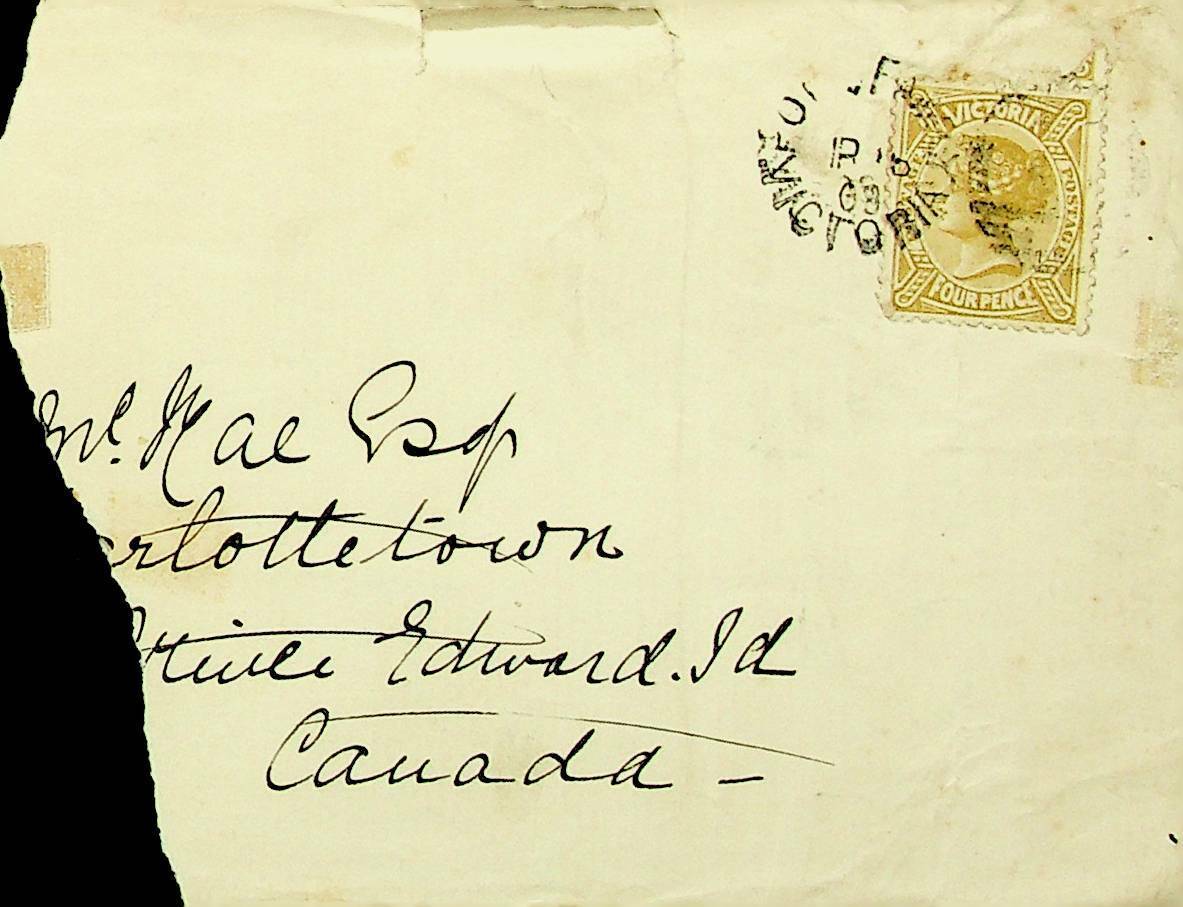 VICTORIA
POSTAGE
FOUR PENCE
VICTORIA
Mc. Rae Esq
rlottetown
Prince Edward. Id
Canada –